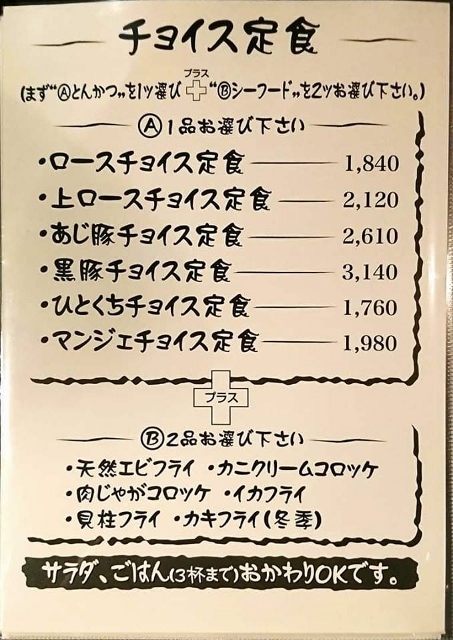 チョイス定食
(まず“Ⓐとんかつ„を1ツ選び プラス “Ⓑシーフード„を2ツお選び下さい。)
Ⓐ1品お選び下さい
・ロースチョイス定食 1,840
・上ロースチョイス定食 2,120
・あじ豚チョイス定食 2,610
・黒豚チョイス定食 3,140
・ひとくちチョイス定食 1,760
・マンジェチョイス定食 1,980
プラス
Ⓑ2品お選び下さい
・天然エビフライ ・カニクリームコロッケ
・肉じゃがコロッケ ・イカフライ
・貝柱フライ ・カキフライ(冬季)
サラダ、ごはん(3杯まで)おかわりOKです。